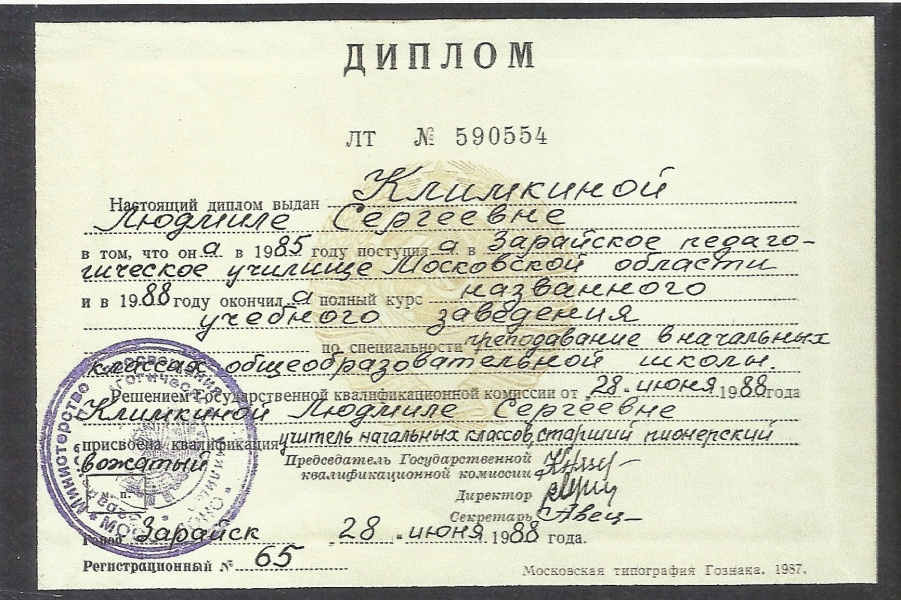 ДИПЛОМ
ЛТ № 590554
Настоящий диплом выдан Климкиной
Людмиле Сергеевне
в том, что она в 1985 году поступила в Зарайское педаго-
гическое училище Московской области
и в 1988 году окончила полный курс названного
учебного заведения
по специальности преподавание в начальных
классах общеобразовательной школы.
Решением Государственной квалификационной комиссии от „28“ июня 1988 года
Климкиной Людмиле Сергеевне
присвоена квалификация учитель начальных классов, старший пионерский
вожатый
Председатель Государственной
квалификационной комиссии
Директор
Секретарь
М. п.
Город Зарайск „28“ июня 1988 года.
Регистрационный № 65
Московская типография Гознака. 1987.
Министерство просвещения